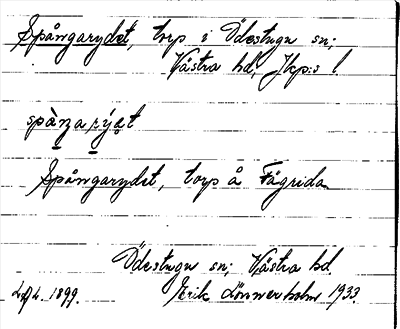 Spångarydet, torp i Ödestugu sn;
Västra hd, Jkp:s l.
spànga rýet
Spångarydet, torp å Fägrida
Ödestugu sn; Västra hd
1899. Erik Lönnerholm 1933.